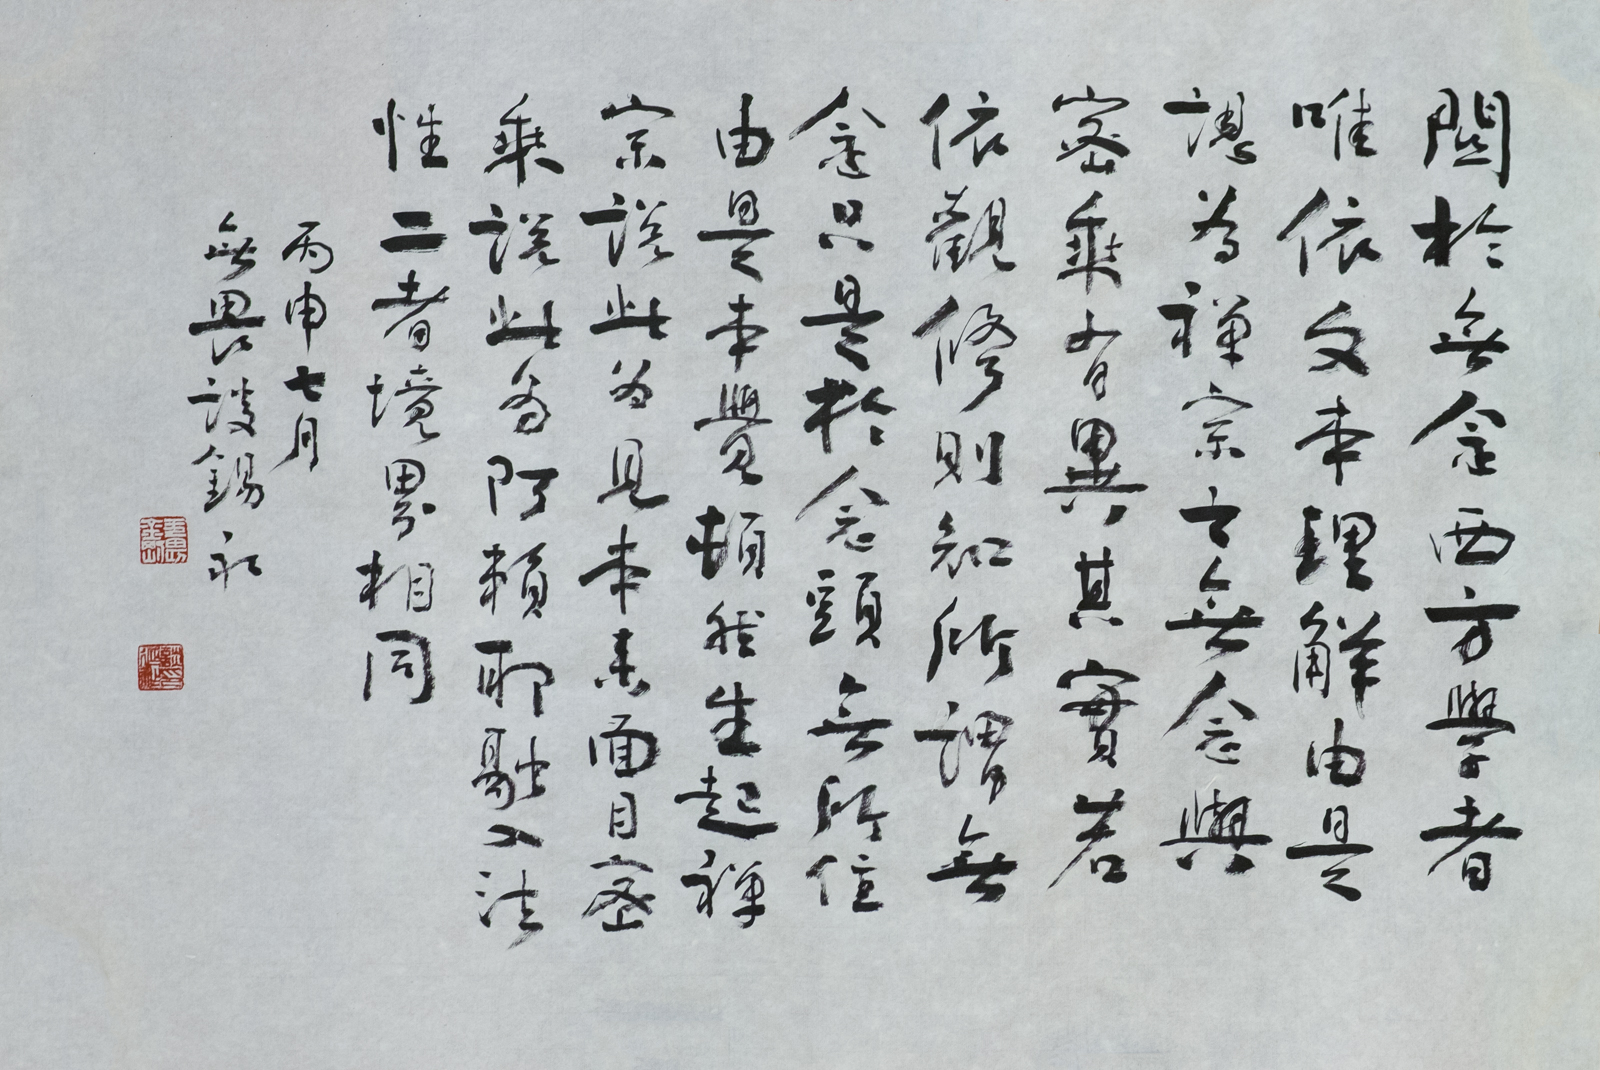 關於無念西方學者
唯依文本理解由是
誤為禪宗言無念與
密乘有異其實若
依觀修則知所謂無
念只是於念頭無所住
由是本覺頓然生起禪
宗說此為見本來面目密
乘說此為阿賴耶融入法
性二者境界相同
丙申七月
無畏談錫永